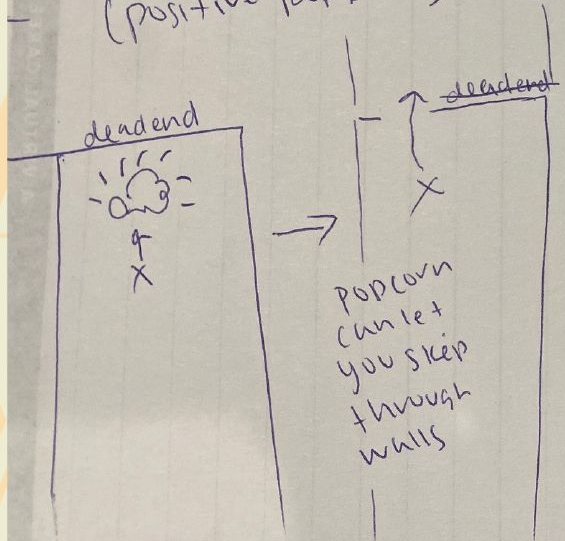 (positive
deadend
deadend
X
X
popcorn
can let
you skip
through
walls